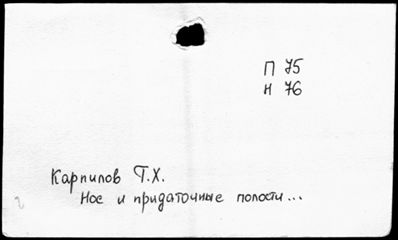 П 75
Н 76
Карпилов Г.Х.
Нос и придаточные полости...
2